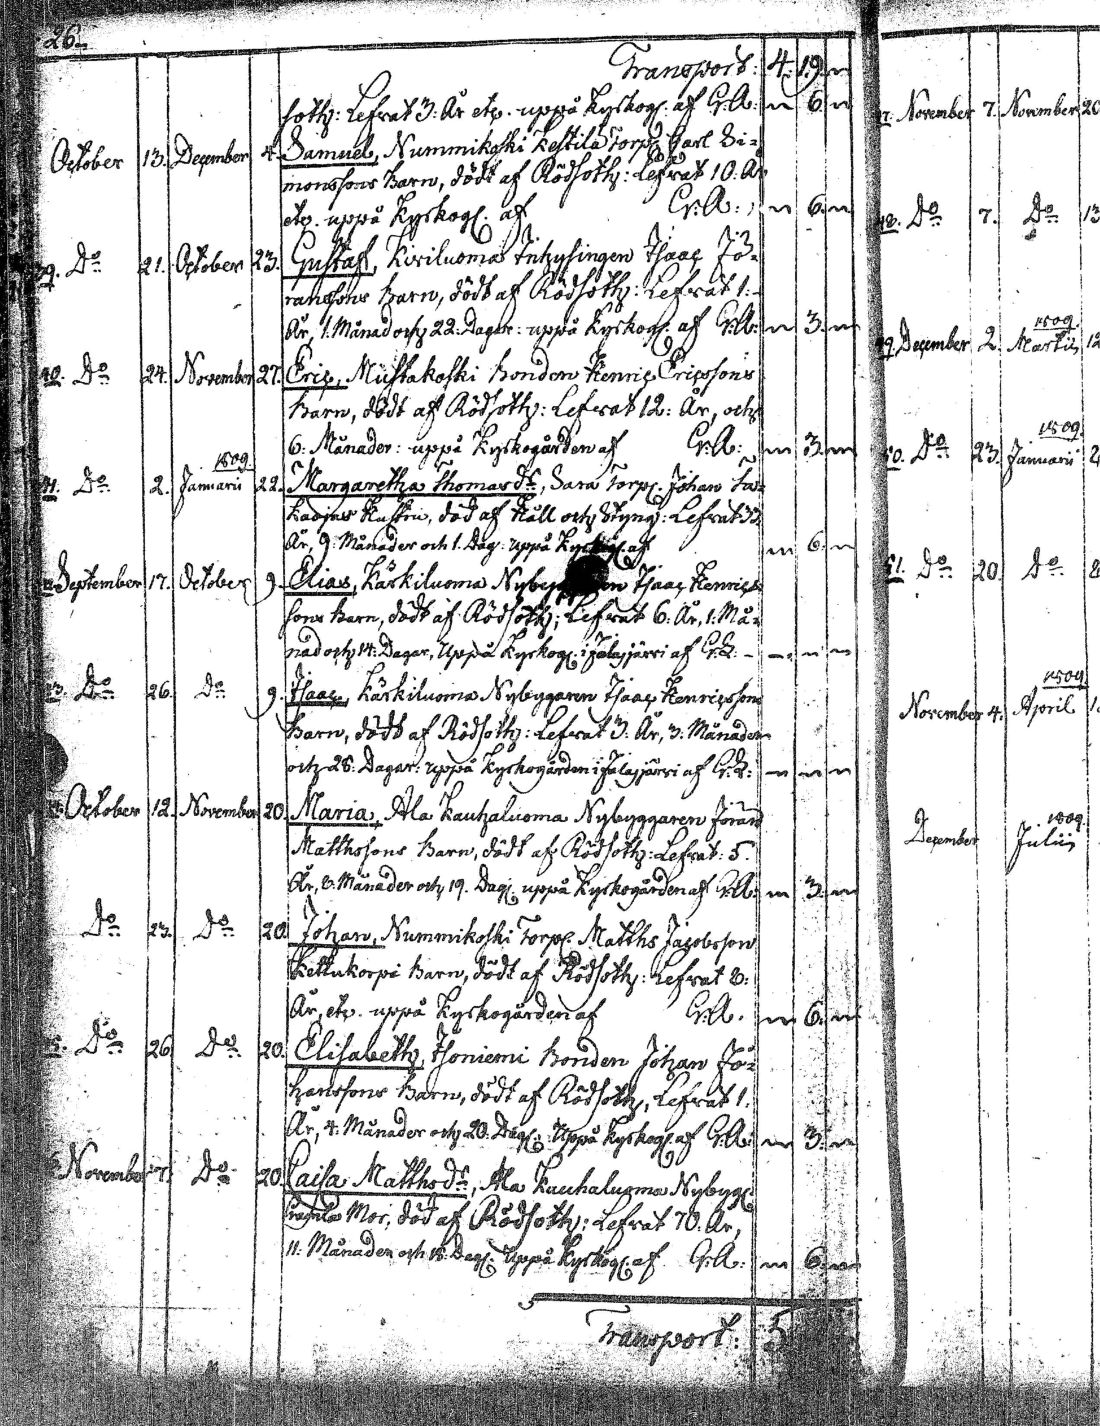 26.
Transport: 4. 19. "
soth: Lefvat 3: År etc. uppå Kyrkog. af Cr:A: " 6 "
October 13. December 4. Samuel, Nummikoski Kestilä Torp. Carl Si-
monssons Barn, dödt af Rödsoth: Lefvat 10. År
etc. uppå Kyrkog. af Cr:A: " 6. "
39. Do 21. October 23. Gustaf, Kiviluoma Inhysingen Isaac Jö-
ranssons Barn, dödt af Rödsoth: Lefvat 1:
År, 1. Månad och 22: Dagar: uppå Kyrkog. af Cr:A: " 3. "
40. Do 24. November 27. Eric, Mustakoski Bonden Henric Ericssons
Barn, dödt af Rödsoth: Lefvat 12: År, och
6: Månader: uppå Kyrkogården af Cr:A: " 3. "
1809.
41. Do 2. Januarii 22. Margaretha Thomasdr, Sara Torp. Johan
Hustru, död af Håll och Styng: Lefvat 33
År, 9: Månader och 1. Dag: uppå Kyrkog. af " 6. "
September 17. October 9. Elias, Käskiluoma Isaac Henrics-
sons Barn, dödt af Rödsoth; Lefvat 6: År, 1: Må-
nad och 14: Dagar, Uppå Kyrkog. i Jalasjärvi af - " "
43. Do 26. Do 9. Isaac, Käskiluoma Nybyggaren Isaac Henricssons
Barn, dödt af Rödsoth: Lefvat 3: År, 3: Månader
och 28: Dagar: uppå Kyrkogården i Jalasjärvi af " " "
October 12. November 20. Maria, Ala Kauhaluoma Nybyggaren Jöran
Matthssons Barn, dödt af Rödsoth: Lefvat: 5.
År, 8: Månader och 19. Dag. uppå Kyrkogården af Cr:A: " 3. "
Do 23. Do 20. Johan, Nummikoski Torp. Matths Jacobsson
Kettukorpi Barn, dödt af Rödsoth: Lefvat 8:
År, etc. uppå Kyrkogården af Cr:A. " 6. "
45. Do 26 Do 20. Elisabeth, Isoniemi Bonden Johan Jo-
hanssons Barn, dödt af Rödsoth, Lefvat 1:
År, 4: Månader och 20: Dag. Uppå Kyrkog. af Cr:A: " 3: "
November 7. Do 20. Caisa Matthsdr, Ala Kauhaluoma Nybygg.
Mor, död af Rödsoth: Lefvat 70. År,
11: Månader och 15: Dag. Uppå Kyrkog. af Cr:A: " 6: "
Transport: 5
November 7. November 20
48. Do 7. Do 13
1809
49. December 2. Martii 12
1809.
50. Do 23. Januarii 2
51. Do 20. Do 8
1809.
November 4. April
1809
December Julii